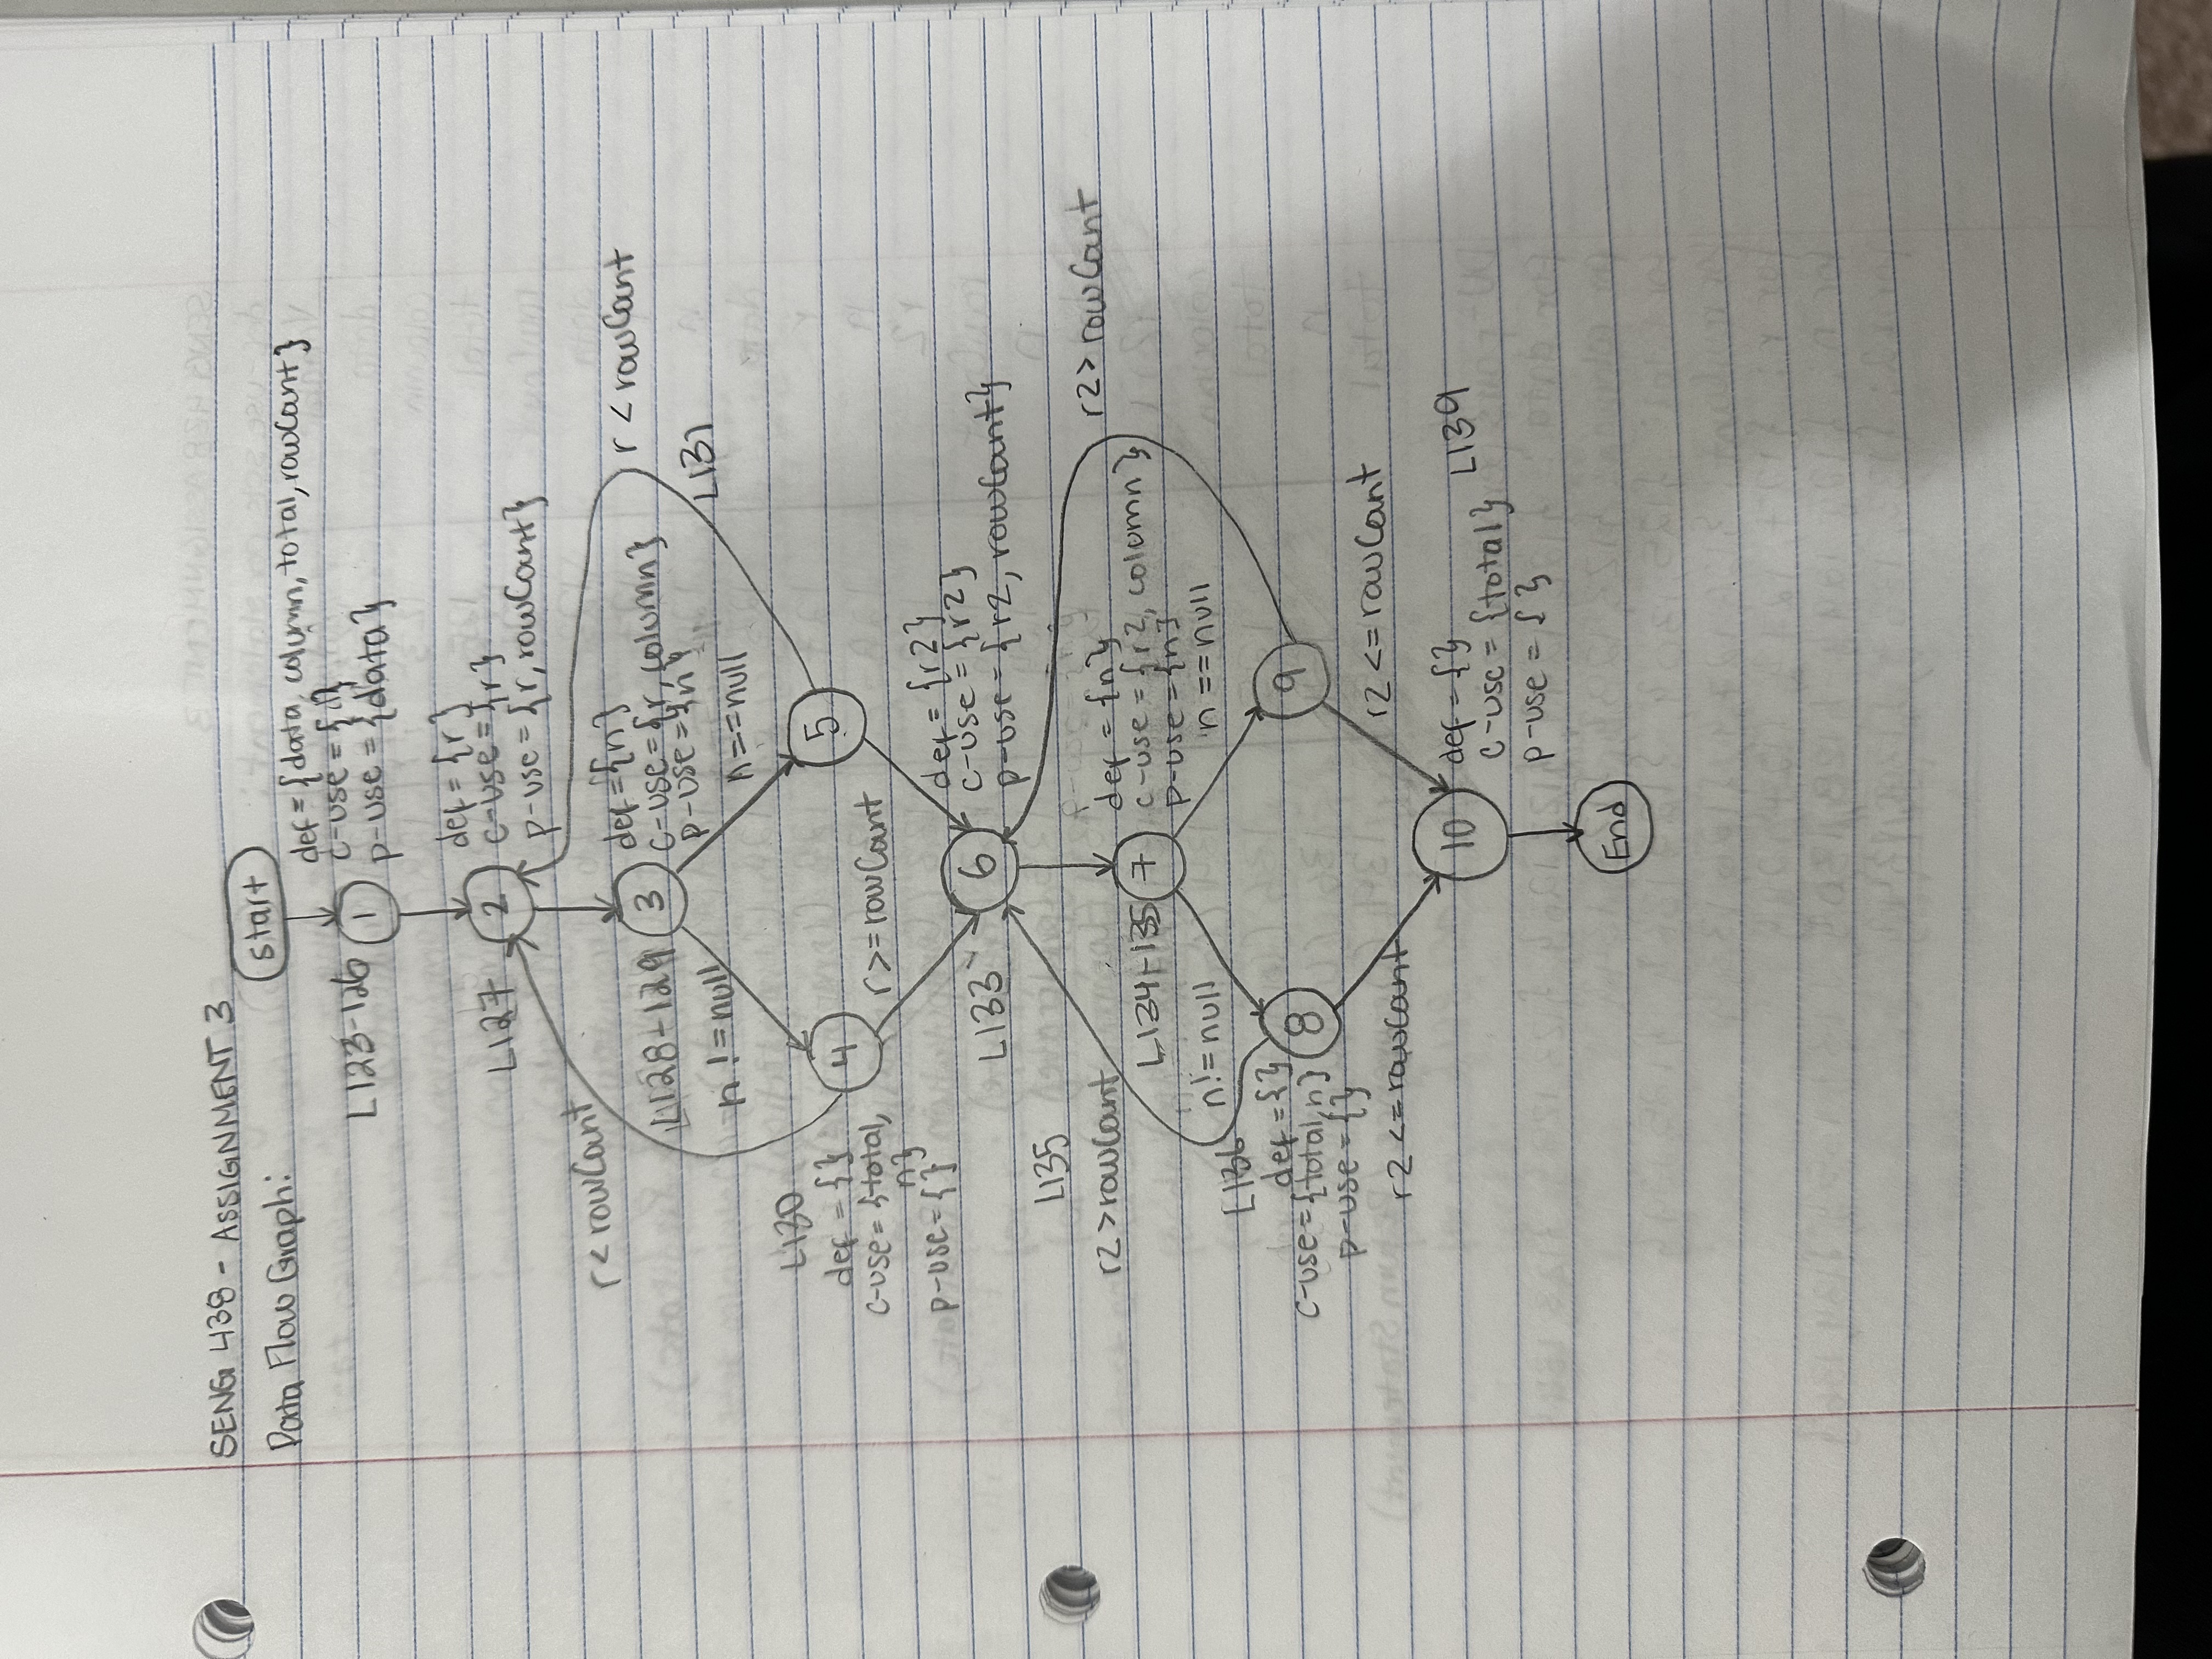 SENG 438 - ASSIGNMENT 3
Data Flow Graph:
start
def = {data, column, total, rowCount}
c-use = {}
p-use = {data}
L123-126
1
def = {r}
c-use = {r}
p-use = {r, rowCount}
L127
2
r < rowCount
r < rowCount
def = {n}
c-use = {r, column}
p-use = {n}
L128-129
3
n != null
n == null
L131
L130
def = {}
c-use = {total,
n}
p-use = {}
4
5
r >= rowCount
def = {r2}
c-use = {r2}
p-use = {r2, rowCount}
L133
6
L135
r2 > rowCount
r2 > rowCount
def = {n}
c-use = {r2, column}
p-use = {n}
L134-135
7
n != null
n == null
L136
def = {}
c-use = {total, n}
p-use = {}
8
9
r2 <= rowCount
r2 <= rowCount
10
def = {}
c-use = {total}
p-use = { }
L139
End